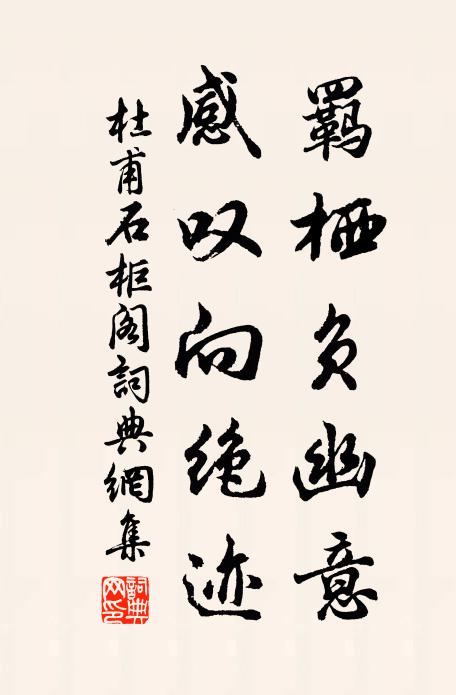 羁栖负幽意
感叹向绝迹
杜甫石柜阁词典網集
詞典网印